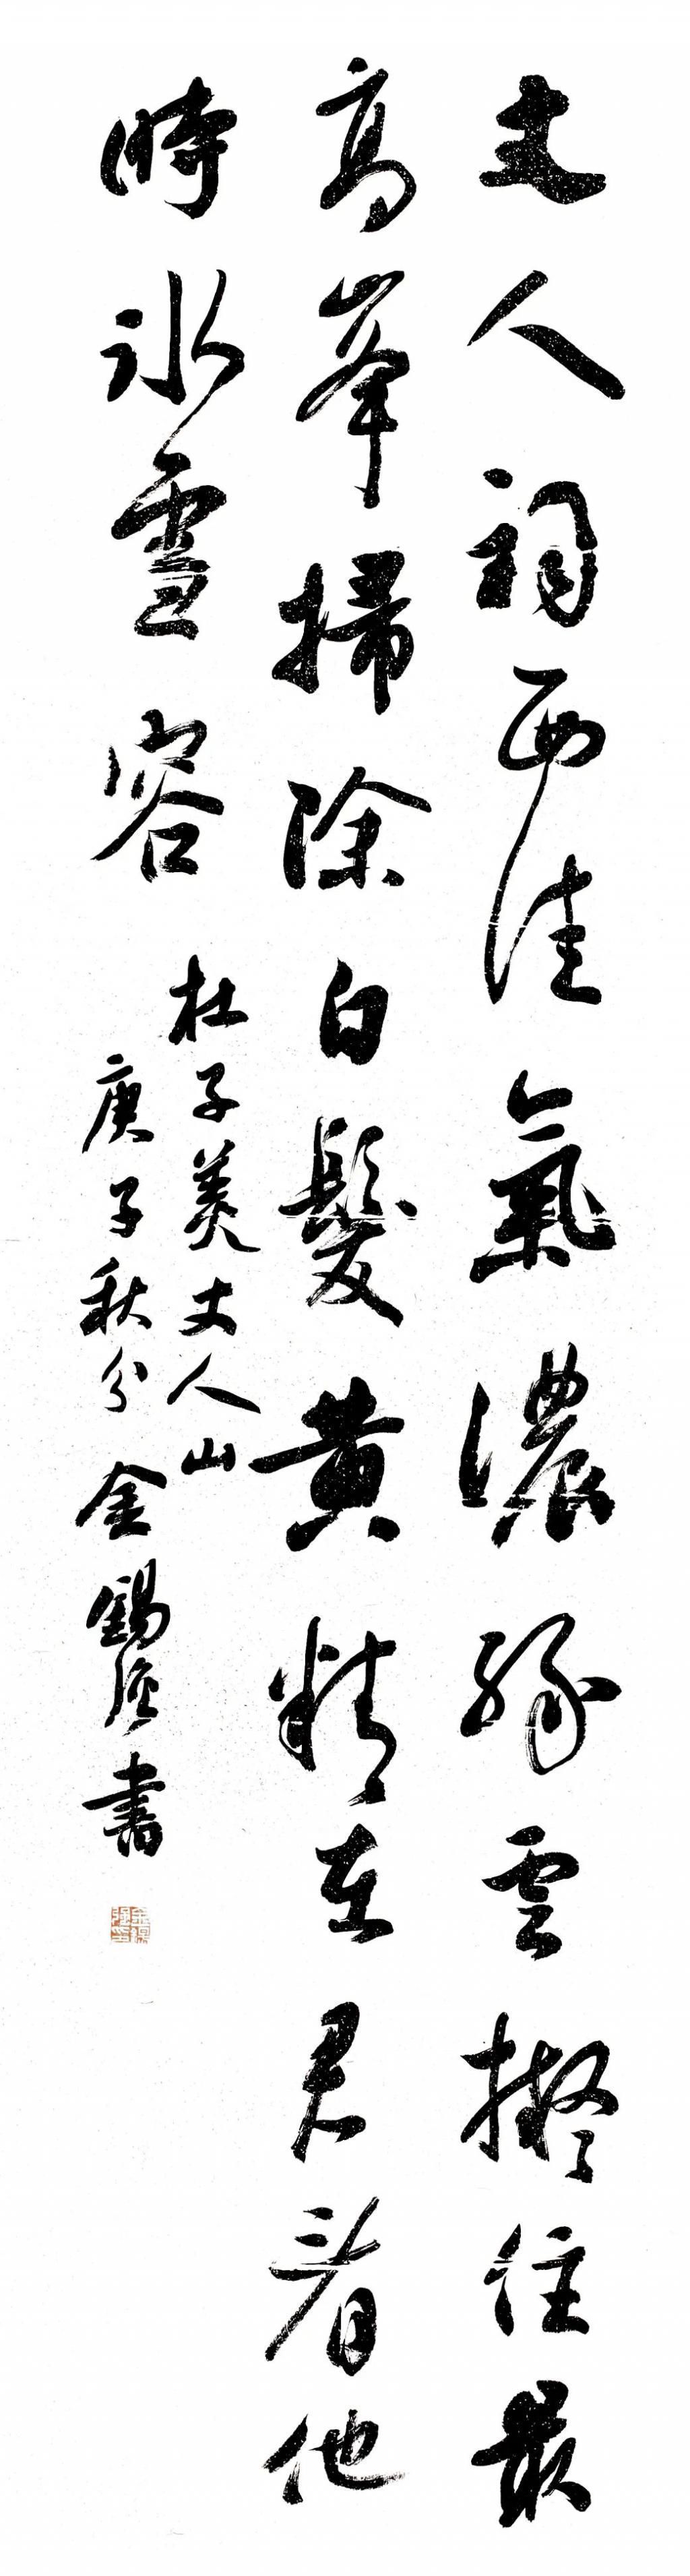 丈人祠西佳氣濃緣雲擬住最
高峯掃除白髮黃精在君看他
時冰雪容
杜子美丈人山
庚子秋分 金錫書